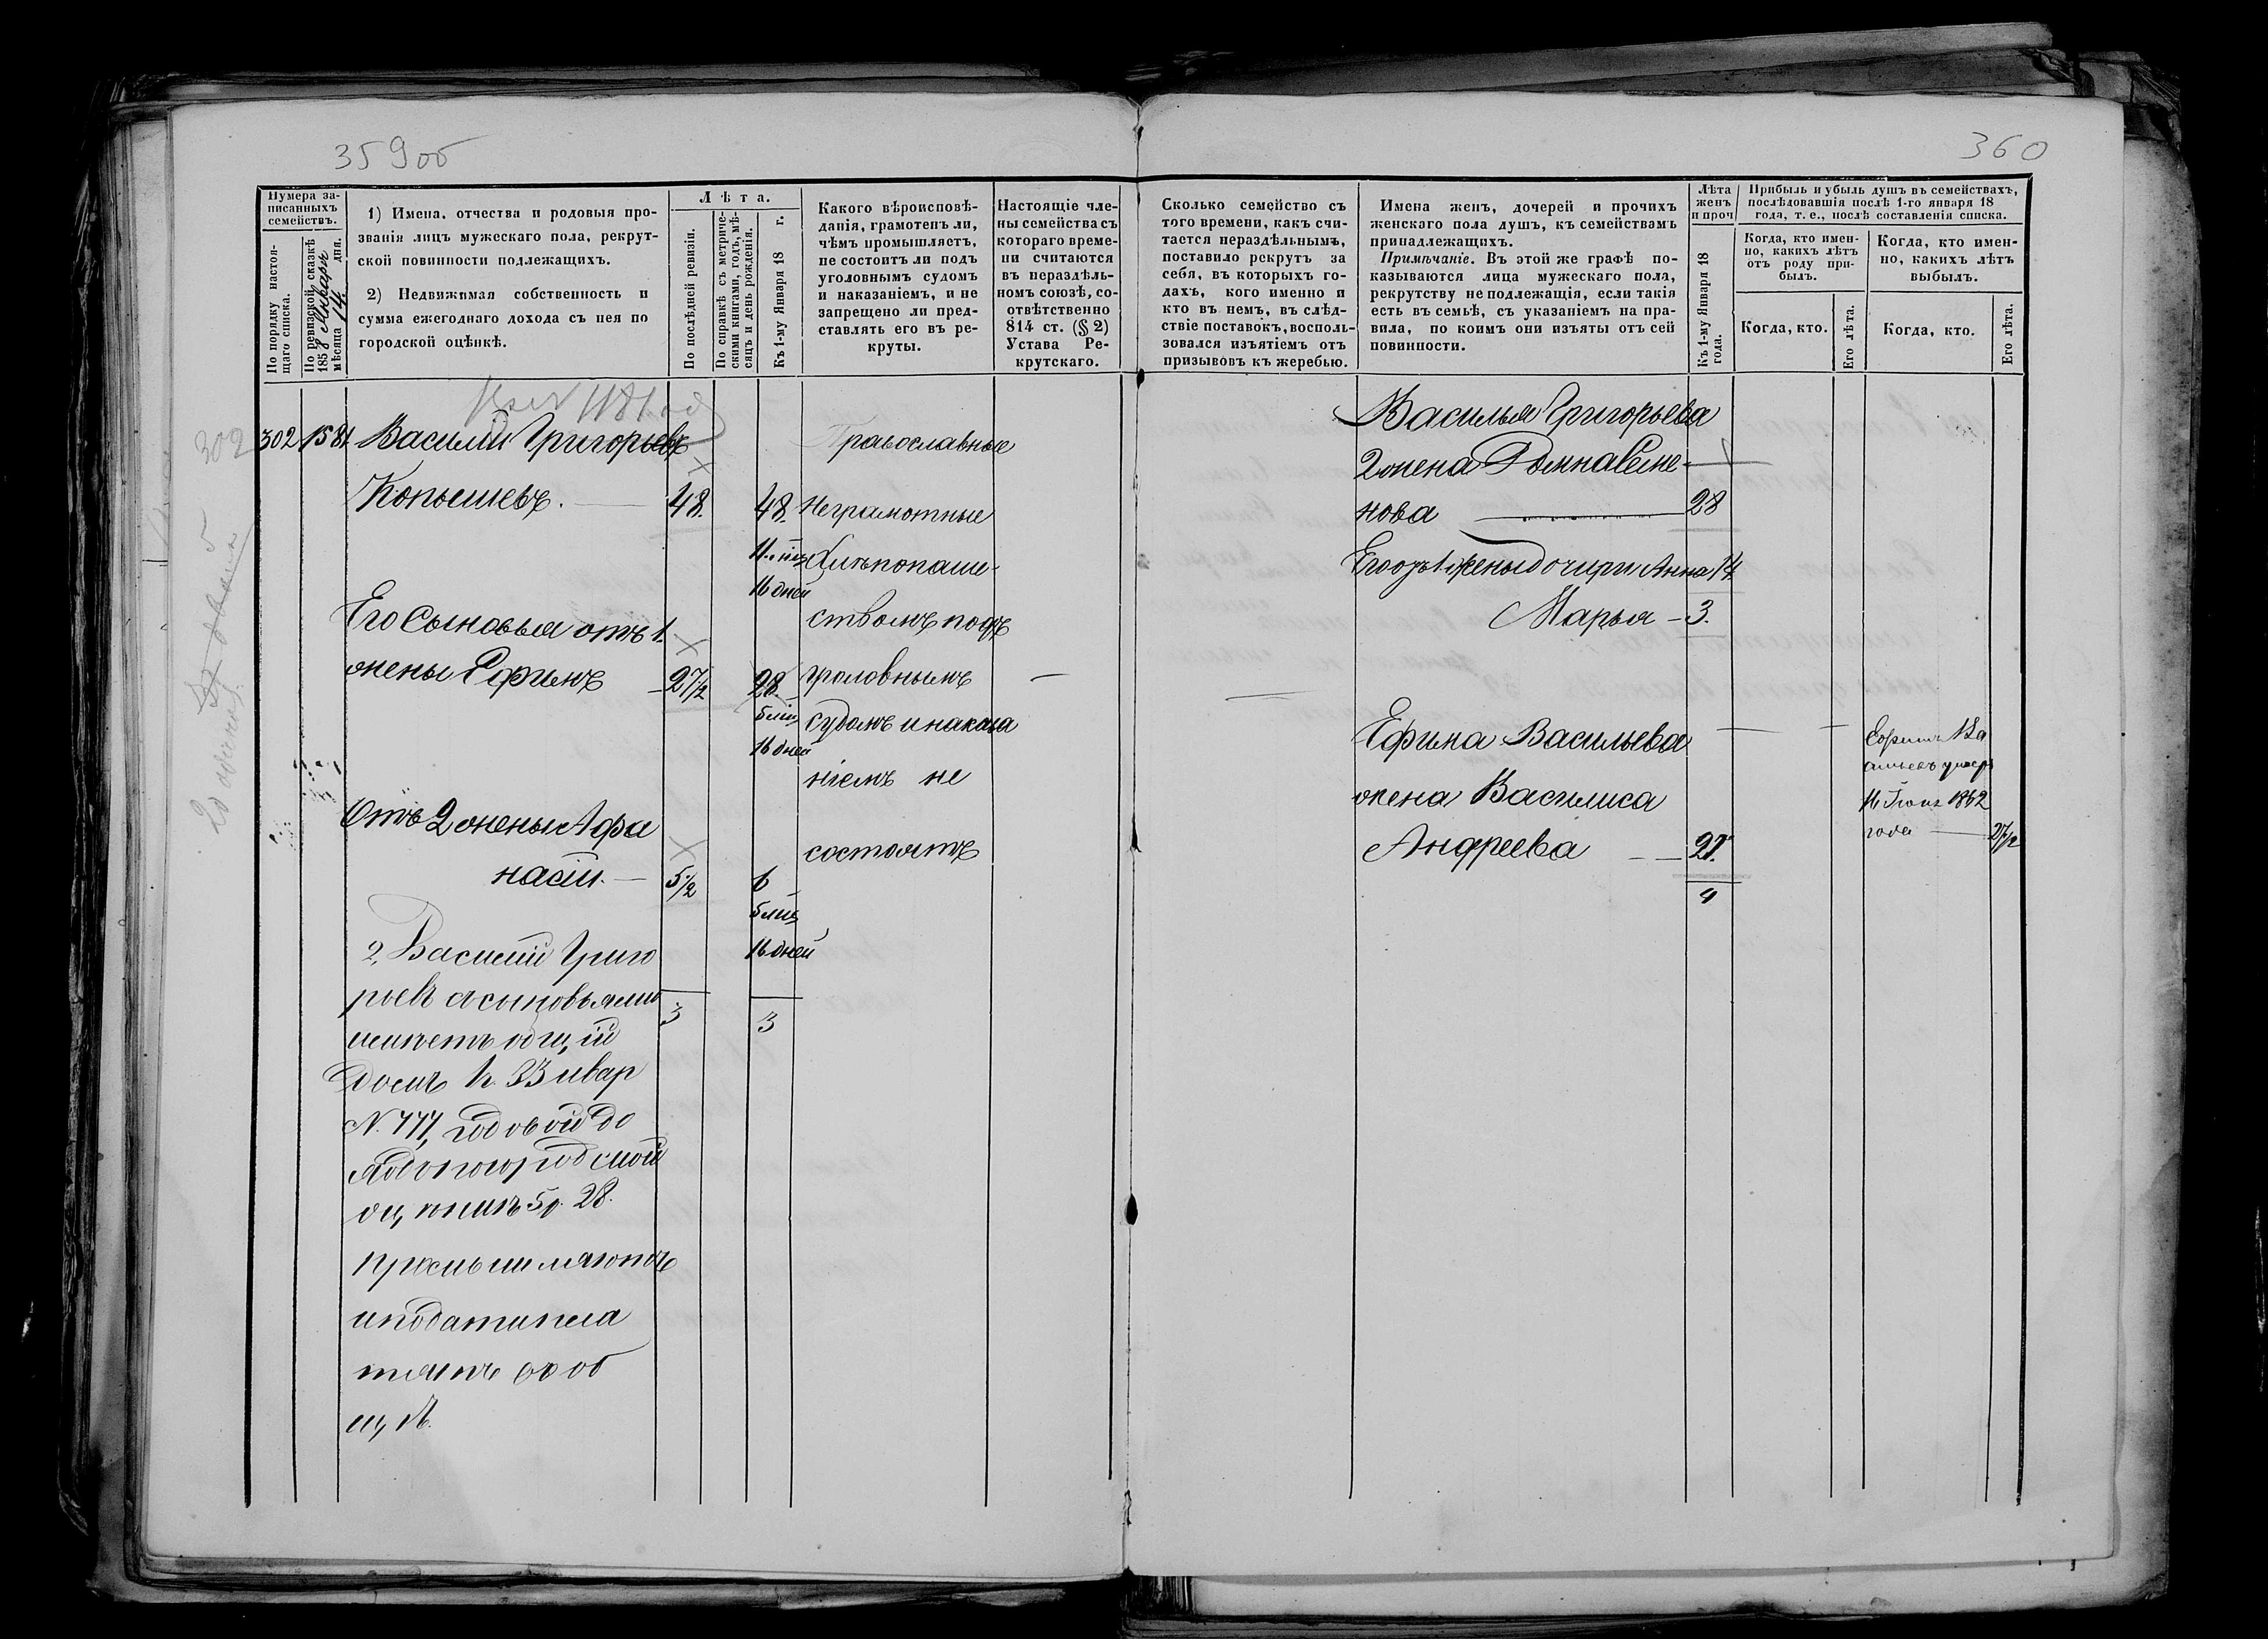 359об
360
Нумера записанныхъ семействъ.
По порядку настоящаго списка.
По ревизской сказкѣ 1858 Января мѣсяца 14 дня.
1) Имена, отчества и родовыя прозванія лицъ мужескаго пола, рекрутской повинности подлежащихъ.
2) Недвижимая собственность и сумма ежегоднаго дохода съ нея по городской оцѣнкѣ.
Лѣта.
По послѣдней ревизіи.
По справкѣ съ метрическими книгами, годъ, мѣсяцъ и день рожденія.
Къ 1-му Января 18 г.
Какого вѣроисповѣданія, грамотенъ ли, чѣмъ промышляетъ, не состоитъ ли подъ уголовнымъ судомъ и наказаніемъ, и не запрещено ли представлять его въ рекруты.
Настоящіе члены семейства съ котораго времени считаются въ нераздѣльномъ союзѣ, соотвѣтственно 814 ст. (§ 2) Устава Рекрутскаго.
Сколько семейство съ того времени, какъ считается нераздѣльнымъ, поставило рекрутъ за себя, въ которыхъ годахъ, кого именно и кто въ немъ, въ слѣдствіе поставокъ, воспользовался изъятіемъ отъ призывовъ къ жеребью.
Имена женъ, дочерей и прочихъ женскаго пола душъ, къ семействамъ принадлежащихъ.
Примѣчаніе. Въ этой же графѣ показываются лица мужескаго пола, рекрутству не подлежащія, если такія есть въ семьѣ, съ указаніемъ на правила, по коимъ они изъяты отъ сей повинности.
Лѣта женъ и проч.
Къ 1-му Января 18 года.
Прибыль и убыль душъ въ семействахъ, послѣдовавшія послѣ 1-го января 18 года, т. е., послѣ составленія списка.
Когда, кто именно, какихъ лѣтъ отъ роду прибылъ.
Когда, кто именно, какихъ лѣтъ выбылъ.
Когда, кто.
Его лѣта.
Когда, кто.
Его лѣта.
302
302 1581 Василій Григорьевъ
Копышевъ. 48. 48.
11 мѣц
16 дней
Его Сыновья отъ 1.
жены Ефимъ 27½ 28.
5 мц
16 дней
Отъ 2 жены Афа
насій. 5½ 6
5 мц
16 дней
3 3
2, Василій Григо
рьевъ съ сыновьями
имѣетъ общій
домъ въ 33 квар
N. 777, годовой до
ходъ по городской
оцѣнкѣ 5 р. 28.
промышляютъ
и подати пла
тятъ сооб
щѣ.
Православные
Неграмотные
Хлѣбопаше-
ствомъ подъ
уголовнымъ
судомъ и наказа
ніемъ не
состоятъ
Василья Григорьева
2 жена Домна Семе-
нова 28
Его отъ 1 жены дочери Анна 14
Марья 3.
Ефима Васильева
жена Василиса
Андреева 27.
4
Ефимъ Ва
сильевъ умеръ
16 Іюня 1862
года 27½